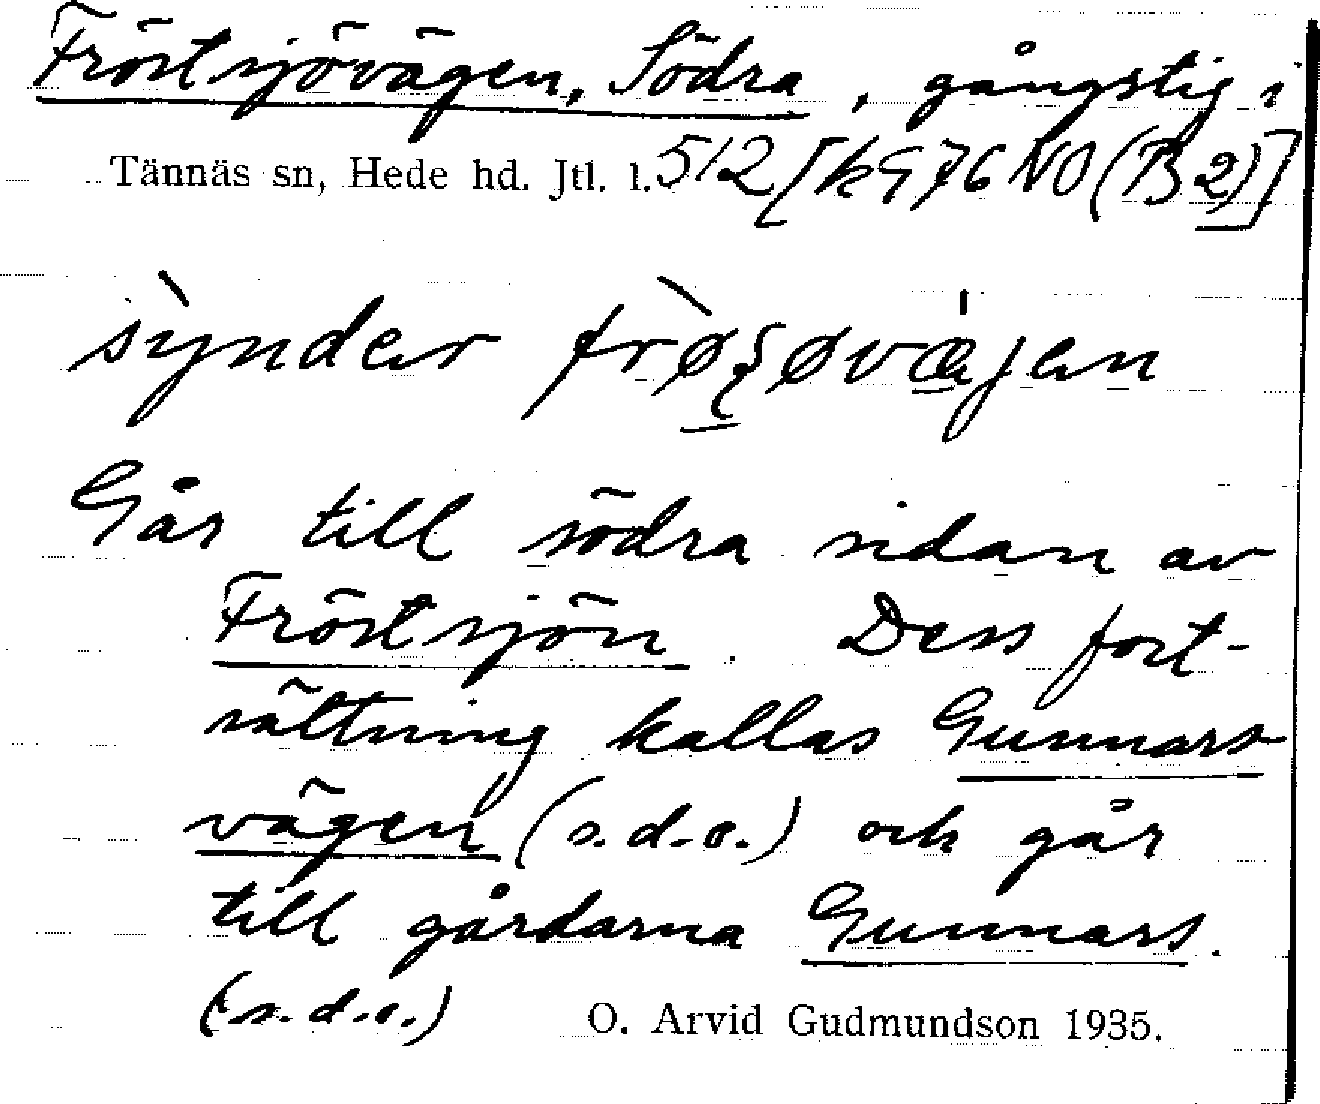 Fröstsjövägen, Södra, gångstig i
Tännäs sn, Hede hd. Jtl. l. 512 [k 976 NO (B 2)]
Går till södra sidan av
Fröstsjön. Dess fort-
sättning kallas Gunnars-
vägen (s.d.o.) och går
till gårdarna Gunnars.
(s.d.o.) O. Arvid Gudmundson 1935.